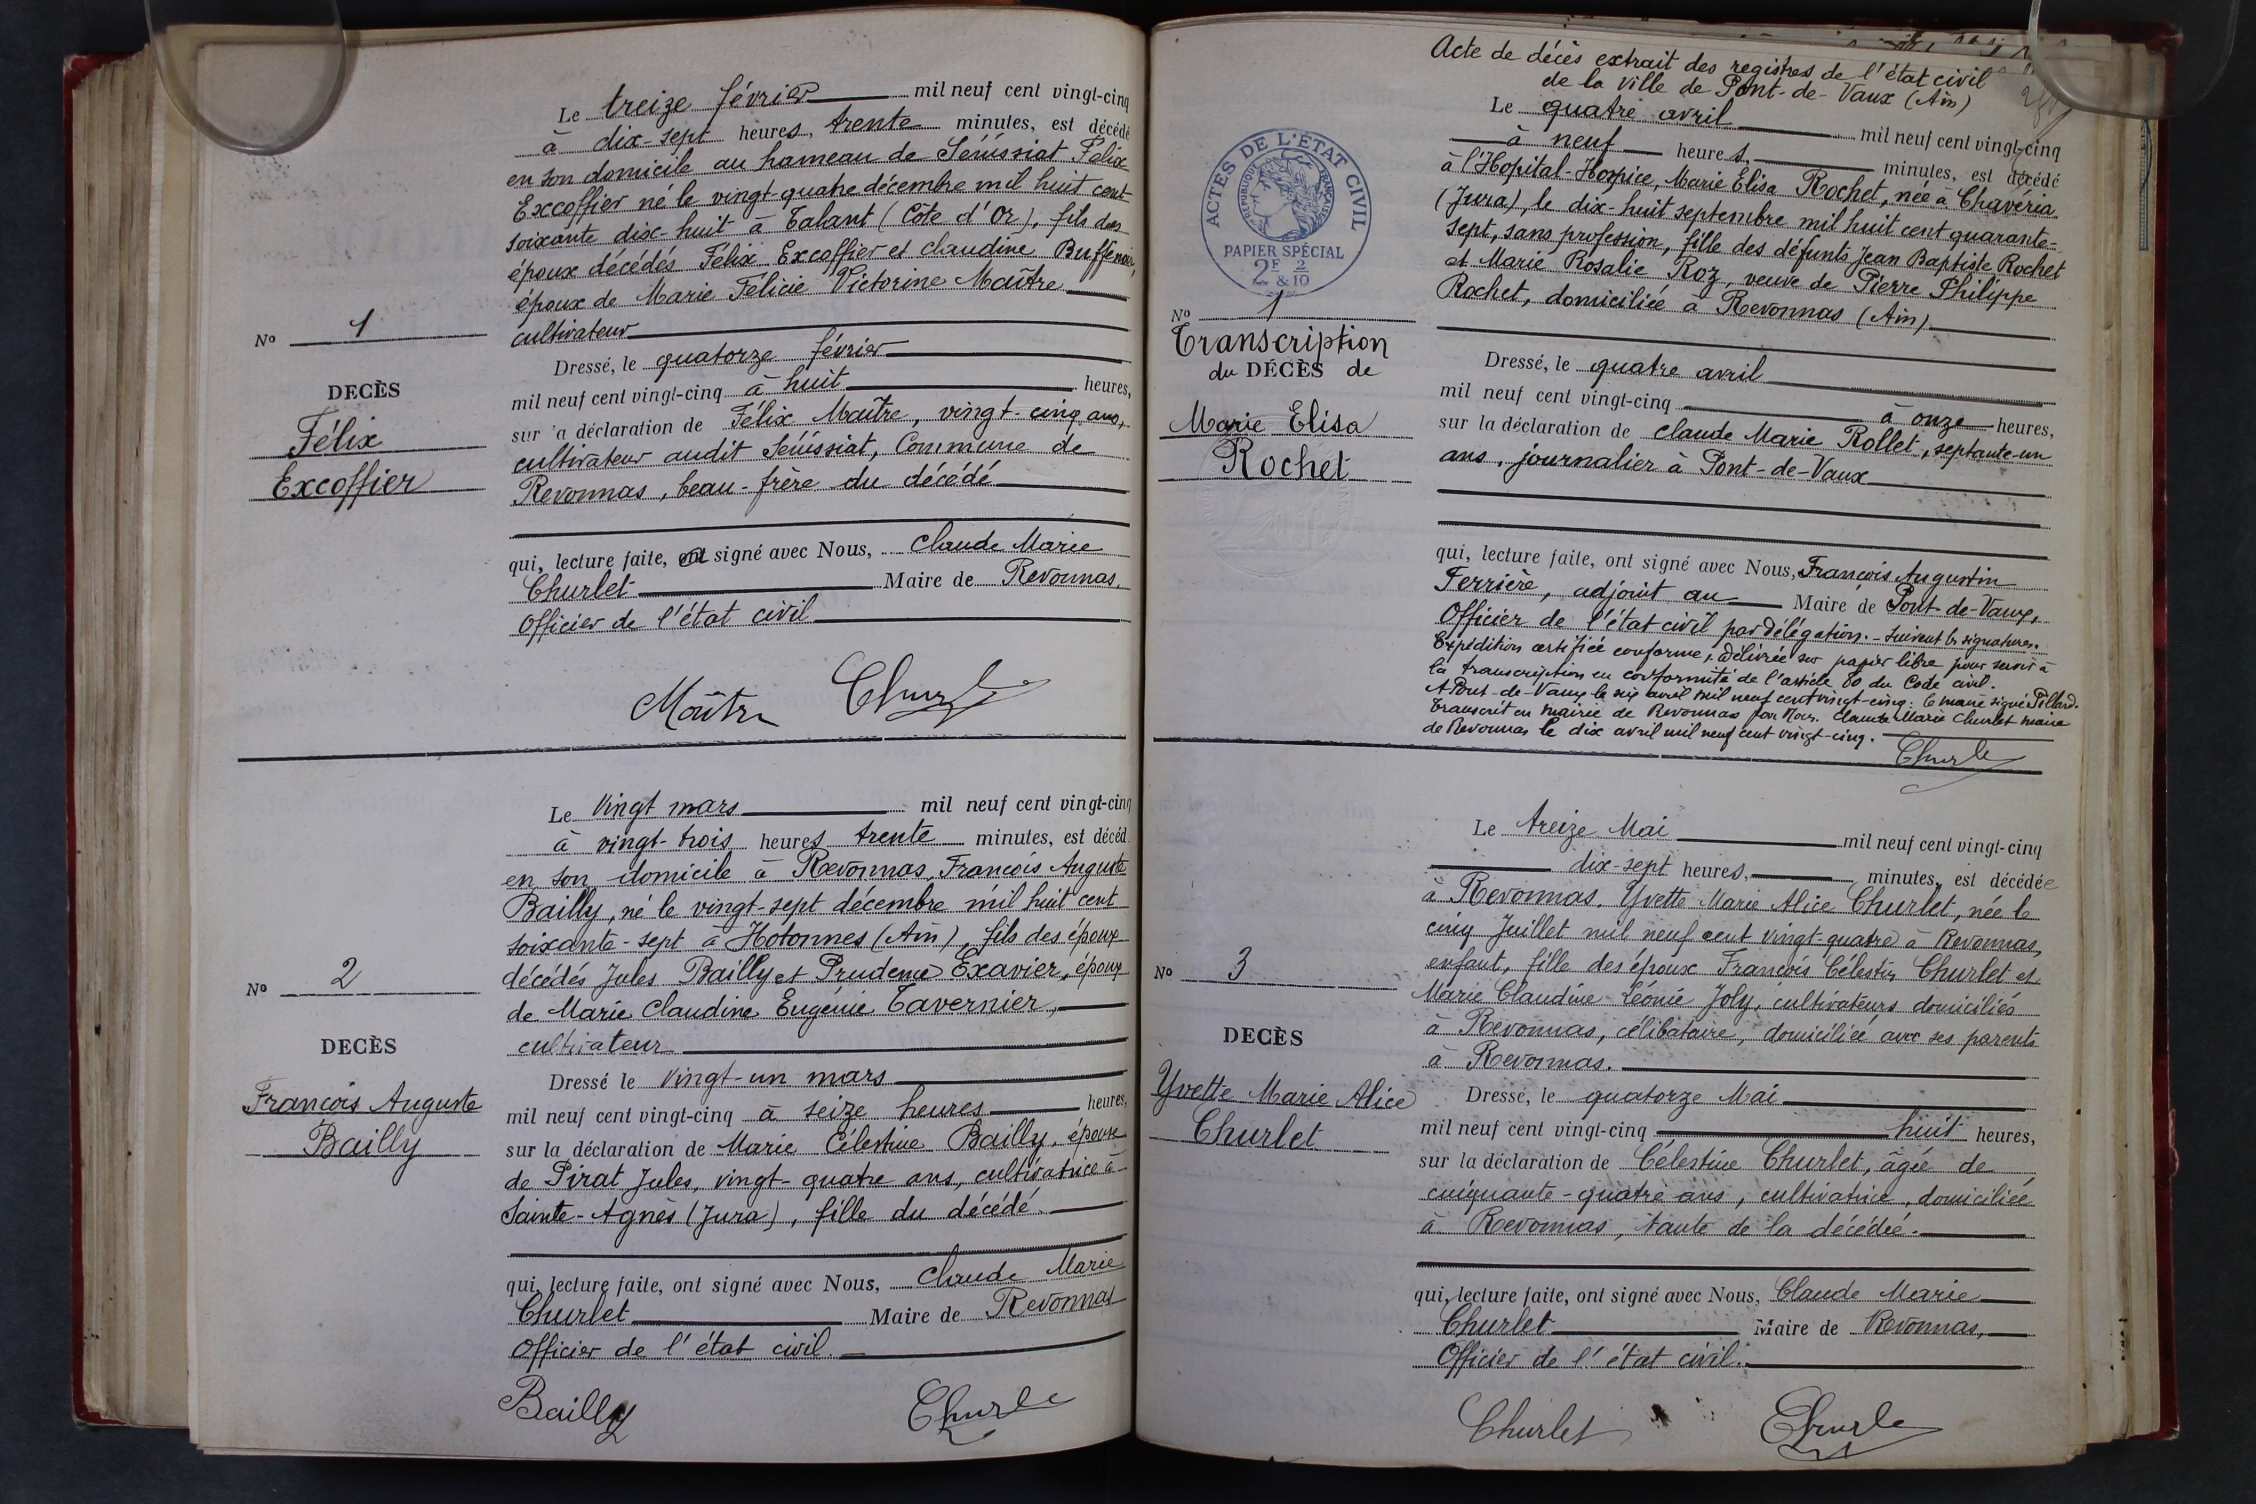 Le treize février mil neuf cent vingt-cinq
à dix-sept heures, trente minutes, est décédé
en son domicile au hameau de Sénissiat Félix
Excoffier né le vingt quatre décembre mil huit cent
soixante dix-huit à Talant (Côte d'Or), fils des
époux décédés Félix Excoffier et Claudine Buffenoir,
époux de Marie Félicie Victorine Maître
cultivateur
No 1
DECÈS
Félix
Excoffier
Dressé, le quatorze février
mil neuf cent vingt-cinq à huit heures,
sur la déclaration de Félix Maître, vingt-cinq ans,
cultivateur audit Sénissiat, Commune de
Revonnas, beau-frère du décédé
qui, lecture faite, a signé avec Nous, Claude Marie
Churlet Maire de Revonnas.
Officier de l'état civil
Maître Churlet
Le vingt mars mil neuf cent vingt-cinq
à vingt-trois heures trente minutes, est décéd
en son domicile à Revonnas, François Auguste
Bailly, né le vingt-sept décembre mil huit cent
soixante-sept à Hotonnes (Ain), fils des époux
décédés Jules Bailly et Prudence Exavier, époux
de Marie Claudine Eugenie Tavernier,
cultivateur
No 2
DECÈS
François Auguste
Bailly
Dressé le vingt-un mars
mil neuf cent vingt-cinq à seize heures heures,
sur la déclaration de Marie Célestine Bailly, épouse
de Pirat Jules, vingt-quatre ans, cultivatrice à
Sainte-Agnès (Jura), fille du décédé.
qui, lecture faite, ont signé avec Nous, Claude Marie
Churlet Maire de Revonnas
Officier de l'état civil.
Bailly Churlet
Acte de décès extrait des registres de l'état civil
de la ville de Pont-de-Vaux (Ain)
Le quatre avril mil neuf cent vingt-cinq
à neuf heures, minutes, est décédé
à l'Hopital-Hospice, Marie Elisa Rochet, née à Chavéria
(Jura), le dix-huit septembre mil huit cent quarante-
sept, sans profession, fille des défunts Jean Baptiste Rochet
et Marie Rosalie Roz, veuve de Pierre Philippe
Rochet, domiciliée à Revonnas (Ain)
ACTES DE L'ÉTAT CIVIL
RÉPUBLIQUE FRANÇAISE
PAPIER SPÉCIAL
2F 2/10
&
No 1
Transcription
du DÉCÈS de
Marie Elisa
Rochet
Dressé, le quatre avril
mil neuf cent vingt-cinq à onze heures,
sur la déclaration de Claude Marie Rollet, septante-un
ans, journalier à Pont-de-Vaux
qui, lecture faite, ont signé avec Nous, François Augustin
Ferrière, adjoint au Maire de Pont-de-Vaux,
Officier de l'état civil par délégation. - Suivent les signatures.
Expédition certifiée conforme, délivrée sur papier libre pour servir à
la transcription en conformité de l'article 80 du Code civil.
A Pont-de-Vaux le six avril mil neuf cent vingt-cinq: le maire signé Pillard.
Transcrit en mairie de Revonnas par Nous. Claude Marie Churlet maire
de Revonnas le dix avril mil neuf cent vingt-cinq.
Churlet
Le treize Mai mil neuf cent vingt-cinq
dix-sept heures, minutes, est décédée
à Revonnas. Yvette Marie Alice Churlet, née le
cinq Juillet mil neuf cent vingt-quatre à Revonnas,
enfant, fille des époux François Célestin Churlet et
Marie Claudine Léonie Joly, cultivateurs domiciliés
à Revonnas, célibataire, domiciliée avec ses parents
à Revonnas.
No 3
DECÈS
Yvette Marie Alice
Churlet
Dressé, le quatorze Mai
mil neuf cent vingt-cinq huit heures,
sur la déclaration de Célestine Churlet, âgée de
cinquante-quatre ans, cultivatrice, domiciliée
à Revonnas, tante de la décédée.
qui, lecture faite, ont signé avec Nous, Claude Marie
Churlet Maire de Revonnas,
Officier de l'état civil.
Churlet Churlet